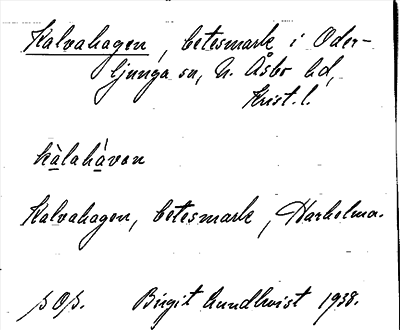 Kalvahagen, betesmark i Oder-
ljunga sn, N. Åsbo hd,
Krist. l.
kàlahávon
Kalvahagen, betesmark, Harhelma.
Birgit Lundkvist 1938.